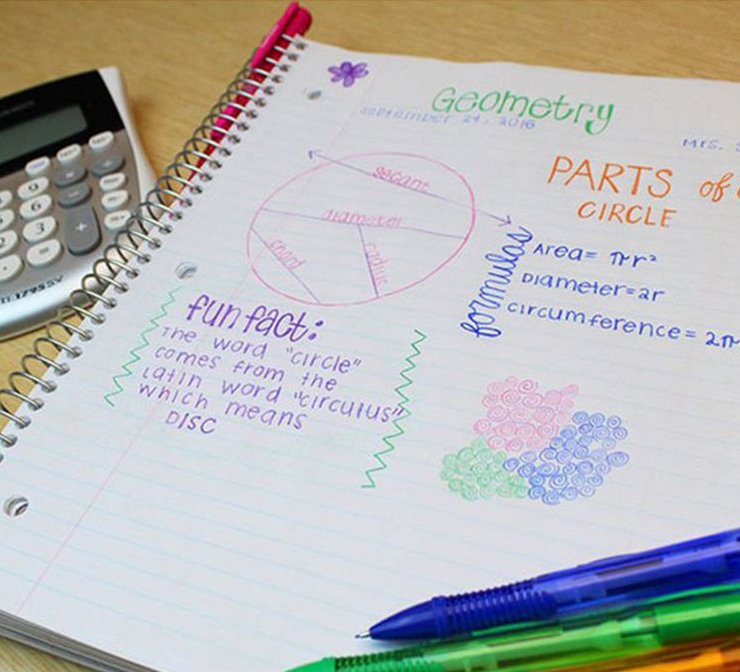 Geometry
September 24, 2016
Mrs.
PARTS of
CIRCLE
secant
diameter
chord
radius
formulas
Area= πr²
Diameter=2r
Circumference= 2π
fun fact:
The word "circle"
comes from the
Latin word "circulus"
which means
DISC
9
6
3
2
+
1795SV